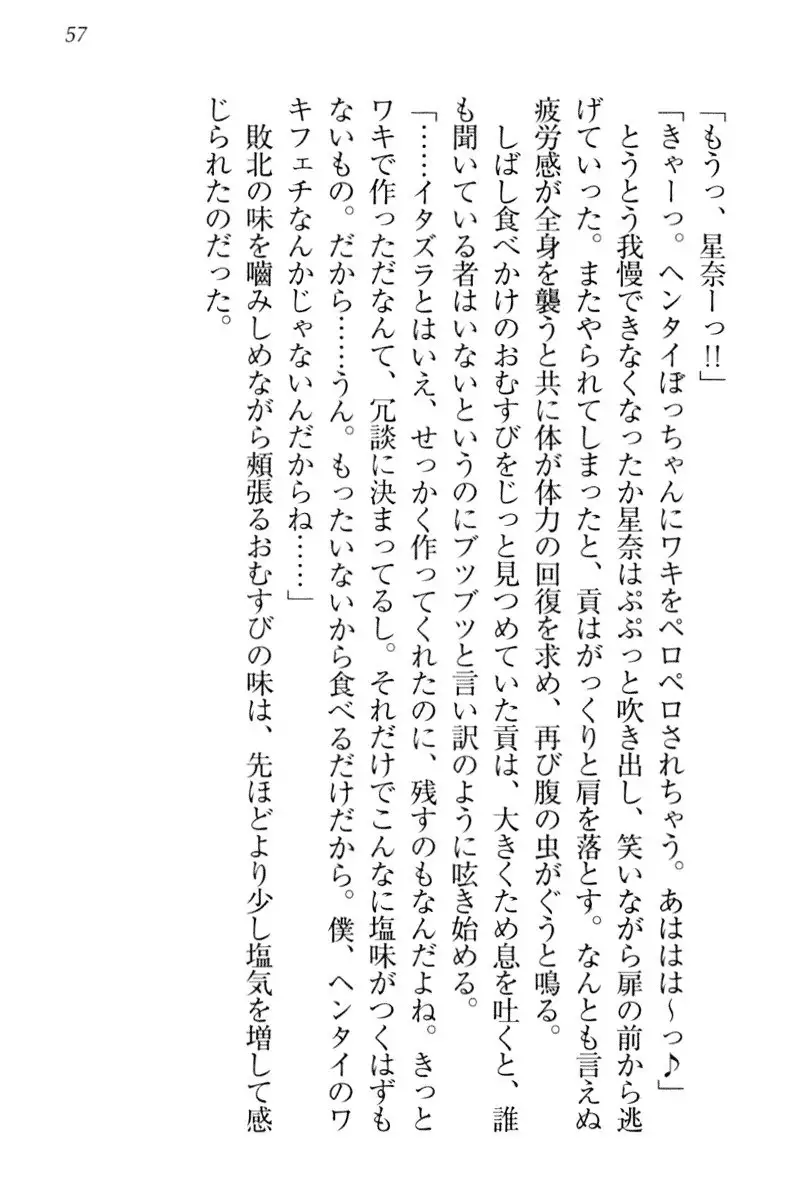 57
「もうっ、星奈ーっ!!」
「きゃーっ。ヘンタイぼっちゃんにワキをペロペロされちゃう。あははは～っ♪」
とうとう我慢できなくなったか星奈はぷぷっと吹き出し、笑いながら扉の前から逃
げていった。またやられてしまったと、貢はがっくりと肩を落とす。なんとも言えぬ
疲労感が全身を襲うと共に体が体力の回復を求め、再び腹の虫がぐうと鳴る。
しばし食べかけのおむすびをじっと見つめていた貢は、大きくため息を吐くと、誰
も聞いている者はいないというのにブツブツと言い訳のように呟き始める。
「……イタズラとはいえ、せっかく作ってくれたのに、残すのもなんだよね。きっと
ワキで作っただなんて、冗談に決まってるし。それだけでこんなに塩味がつくはずも
ないもの。だから……うん。もったいないから食べるだけだから。僕、ヘンタイのワ
キフェチなんかじゃないんだからね……」
敗北の味を噛みしめながら頬張るおむすびの味は、先ほどより少し塩気を増して感
じられたのだった。